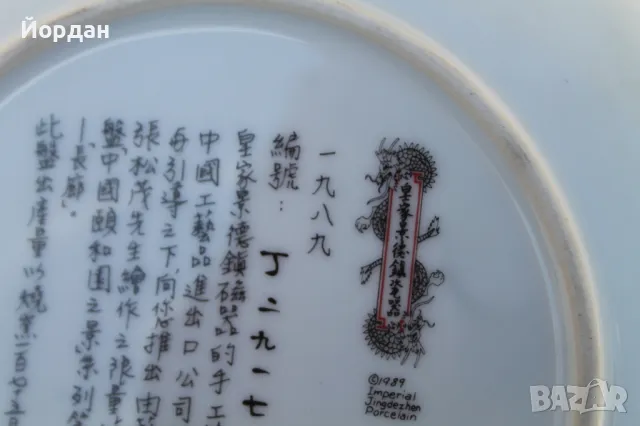 Йордан
一九八九
編號：丁二九一七
皇家景德鎮磁器的手工
中國工藝品進出口公司
再引導之下,向您推出由
張松茂先生繪作之限量
盤,中國頤和園之景系列
一,長廊。
此盤出產量以燒業一百七十
皇家景德鎮瓷器
©1989
Imperial
Jingdezhen
Porcelain
BAZAR
bg